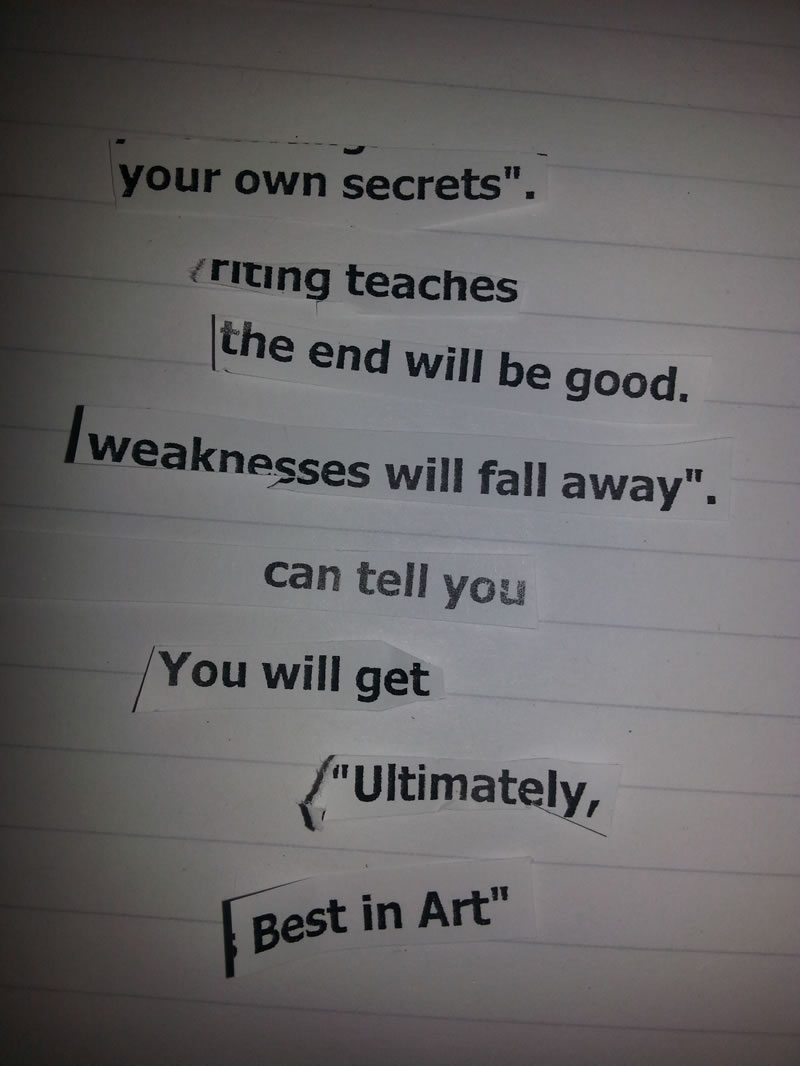 your own secrets".
riting teaches
the end will be good.
weaknesses will fall away".
can tell you
You will get
"Ultimately,
Best in Art"